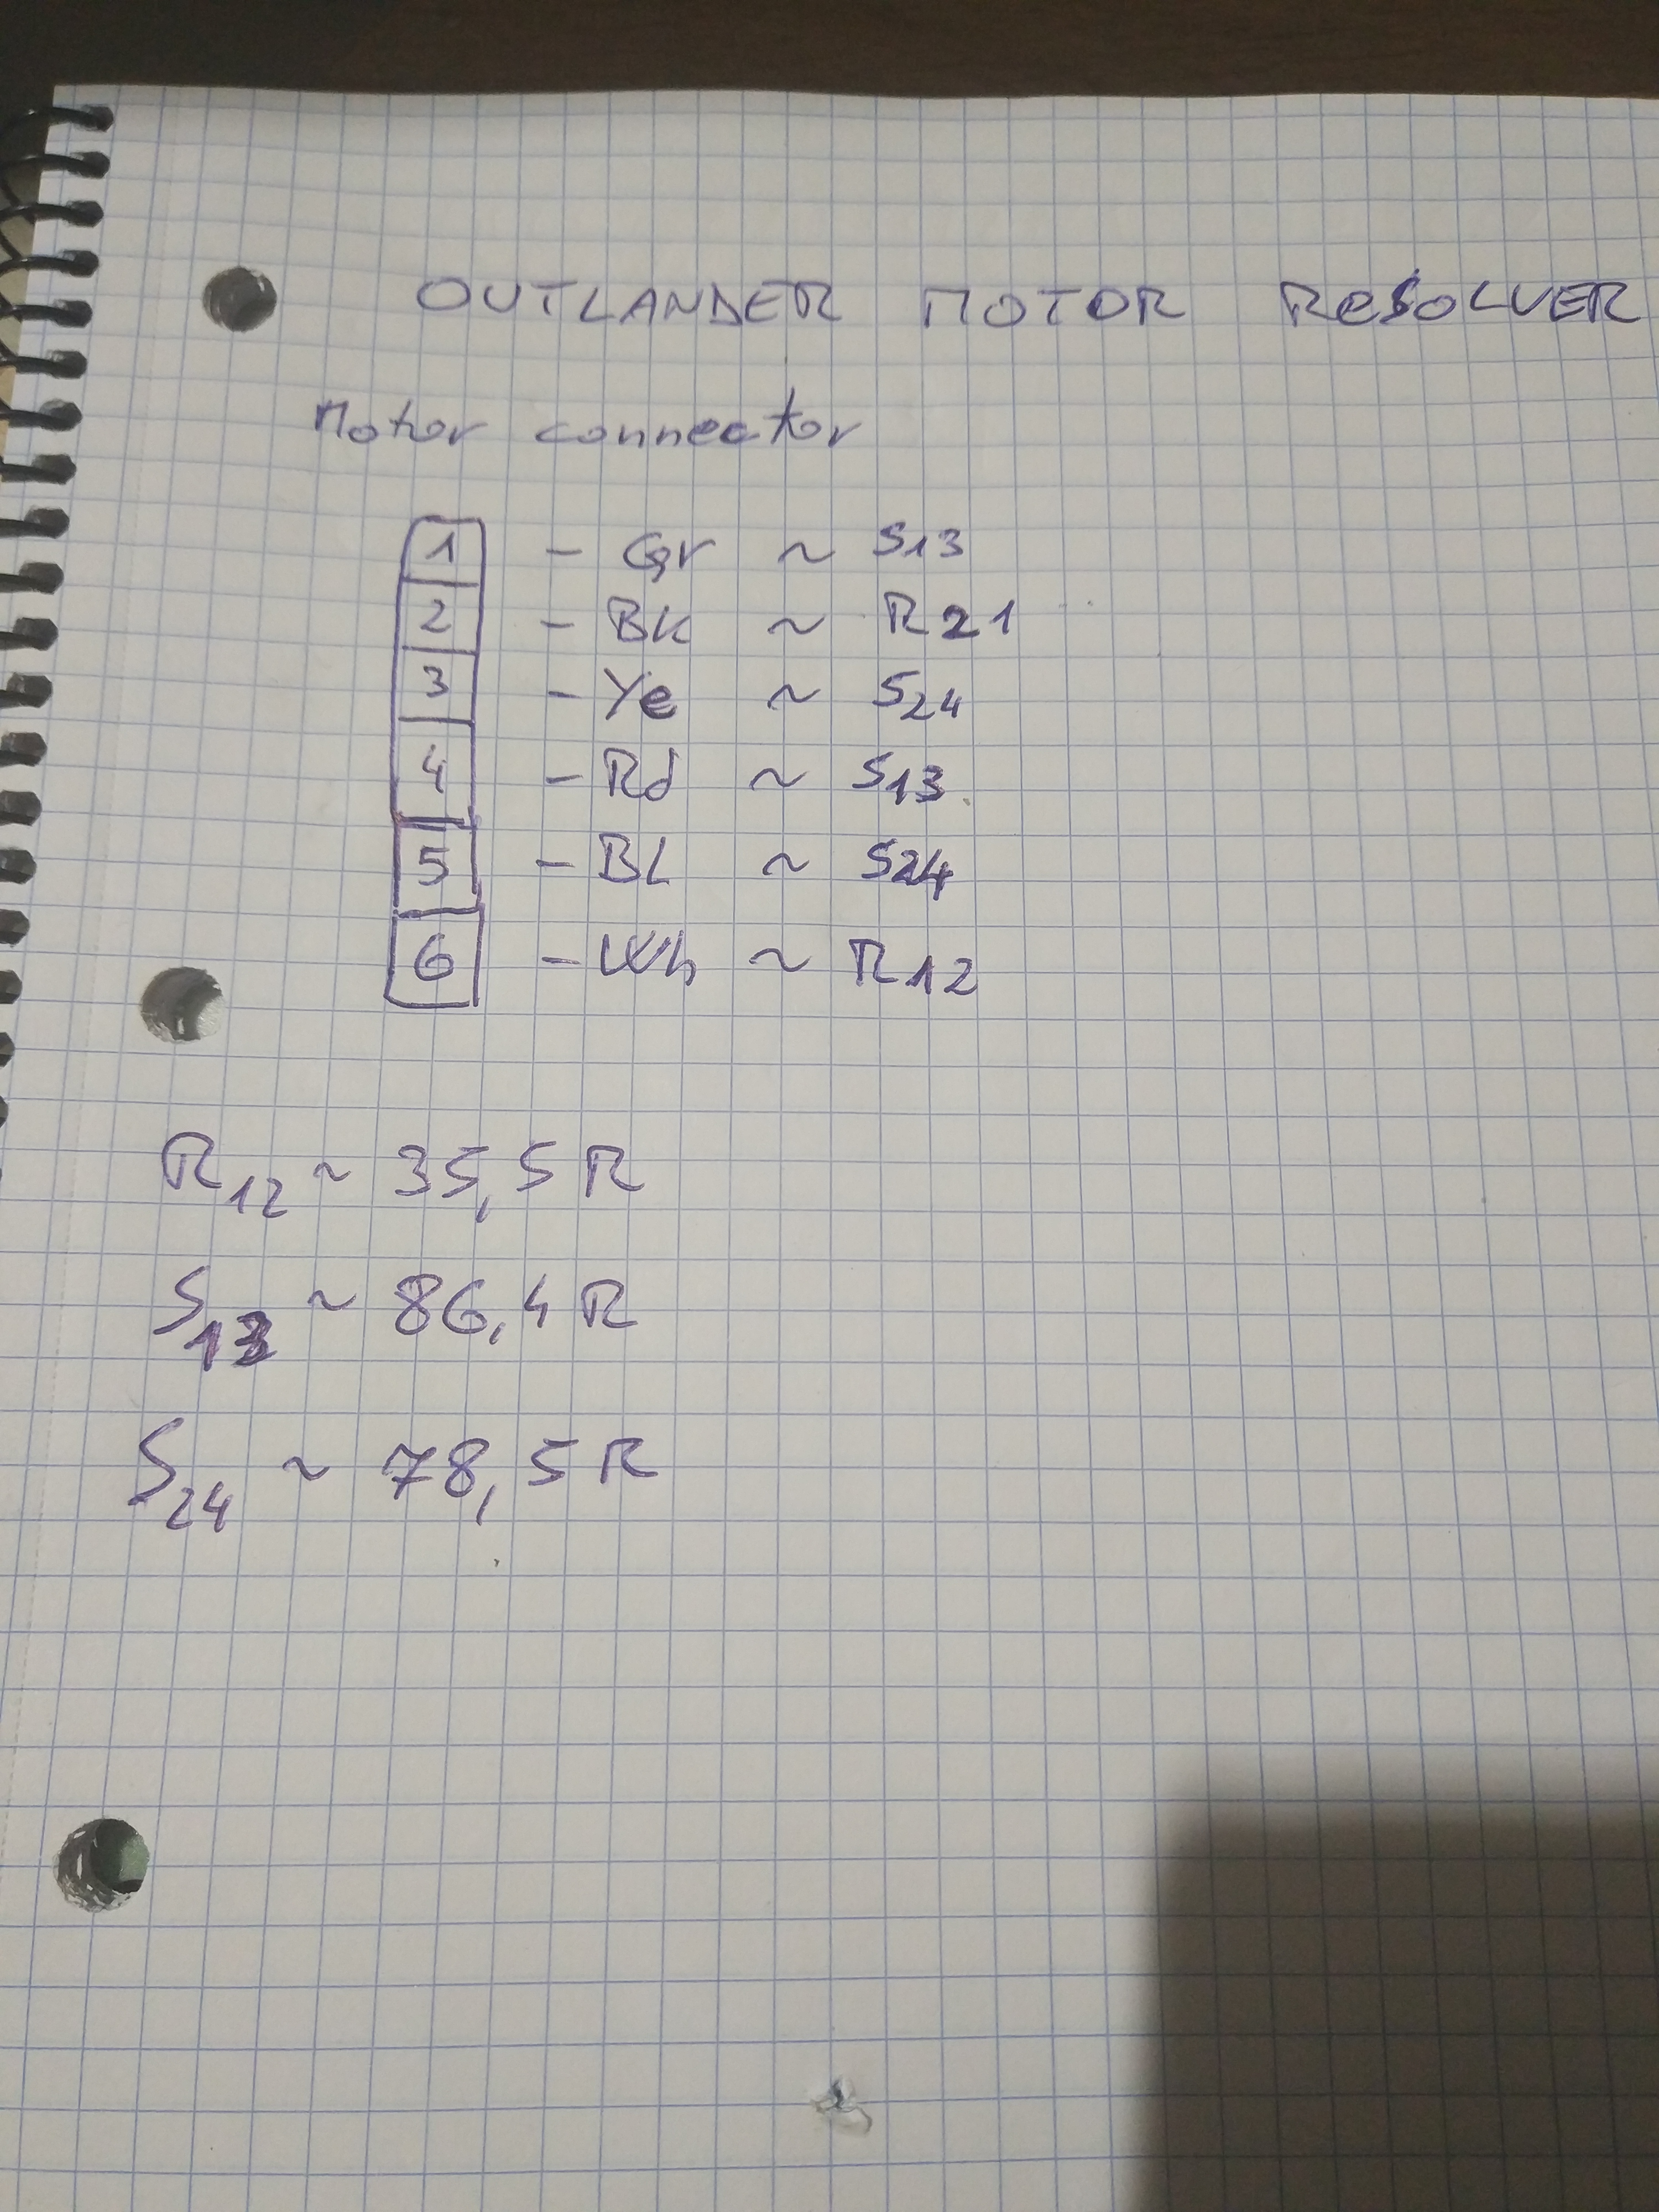 OUTLANDER MOTOR RESOLVER
Motor connector
1 - Gr ~ S13
2 - Bk ~ R21
3 - Ye ~ S24
4 - Rd ~ S13
5 - BL ~ S24
6 - Wh ~ R12
R12 ~ 35,5 R
S13 ~ 86,4 R
S24 ~ 78,5 R